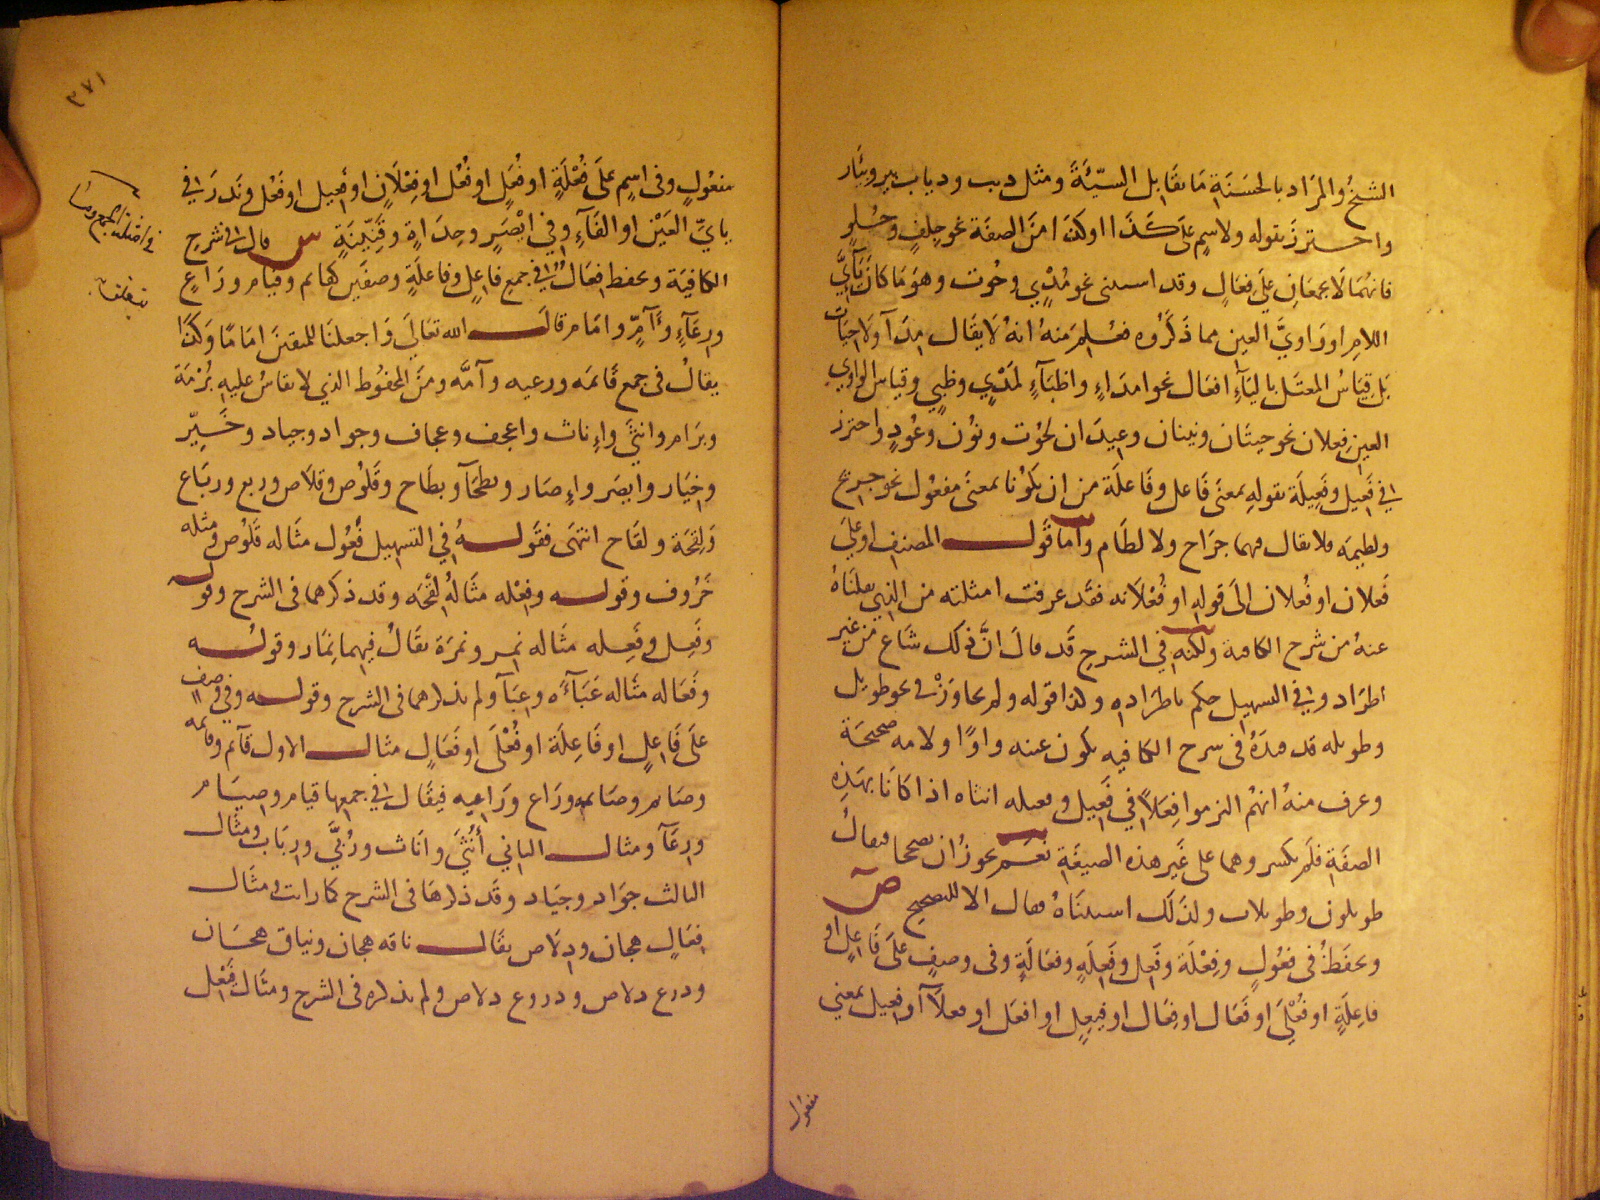 الشيخ والمراد بالحسنة ما يقابل السيئة ومثل ديب ودياب بير وبئار
واحترز بقوله ولاسم على كذا او كذا من الصفة نحو جلف وحلو
فانهما لا يجمعان على فعال وقد استثنى نحو مدي وحوت وهو ما كان يآئي
اللام او واوي العين مما ذكروه فعلم منه انه لا يقال مدآ ولا حيات
بل قياس المعتل باليآء افعال نحو امداء واظبآء لمدي وظبي وقياس الواوي
العين فعلان نحو حيتان ونينان وعيدان لحوت ونون وعود واحترز
في فعيل وفعيلة بقوله بمعنى فاعل وفاعلة من ان يكونا بمعنى مفعول نحو جريح
ولطيمه فلا يقال فيهما جراح ولا لطام وأما قول المصنف او على
فعلان او فعلان الى قوله او فعلانه فقد عرفت امثلته من الذي نقلناه
عنه من شرح الكافية ولكنه في الشرح قد قال ان ذلك شاع من غير
اطراد وفي التسهيل حكم باطراده ولذا قوله ولم يجاوز في نحو طويل
وطويله قد قيده في شرح الكافيه بكون عينه واوا ولامه صحيحة
وعرف منه انهم التزموا فعالا في فعيل وفعيله انثاه اذا كانا بهذه
الصفة فلم يكسروهما على غير هذه الصيغة نعم يجوز ان يصححا فيقال
طويلون وطويلات ولذلك استثناه فقال الا للتصحيح ص
ويحفظ في فعول وفعلة وفعل وفعلة وفعالة وفى وصف على فاعل او
فاعلة او فعلى او فعال او فعال او فيعل او افعل او فعلآ او فعيل بمعنى
مفعول
٣٧١
مفعول وفى اسم على فعلة او فعل او فعل او فعلان او فعيل او فعل وندر في
يايي العين او الفآء وفي ايصر وحدأة وقنينة س قال في شرح
الكافية ويحفظ فعال في جمع فاعل وفاعلة وصفين كقائم وقيام وراع
ورعآء وءآم وامام قال الله تعالى واجعلنا للمتقين اماما وكذا
يقال فى جمع قائمه وراعيه وآمه ومن المحفوظ الذي لا يقاس عليه برمة
وبرام وانثى واناث واعجف وعجاف وجواد وجياد وخير
وخيار وايصر واصار وبطحآ وبطاح وقلوص وقلاص وربع ورباع
ولقحة ولقاح انتهى فقوله في التسهيل فعول مثاله قلوص ومثله
خروف وقوله وفعله مثاله لقحه وقد ذكرهما فى الشرح وقوله
وفعل وفعله مثاله نمر ونمرة يقال فيهما نمار وقوله
وفعاله مثاله عبآءه وعبآ ولم يذكرهما فى الشرح وقوله وفي وصف
على فاعل او فاعلة او فعلى او فعال مثال الاول قآئم وقائمه
وصائم وصائمه وراع وراعيه فيقال في جمعها قيام وصيام
ورعآ ومثال الثاني أنثى واناث وربى ورباب ومثال
الثالث جواد وجياد وقد ذكرها فى الشرح كما رايت ومثال
فعال هجان ودلاص يقال ناقه هجان ونياق هجان
ودرع دلاص ودروع دلاص ولم يذكره فى الشرح ومثال فيعل